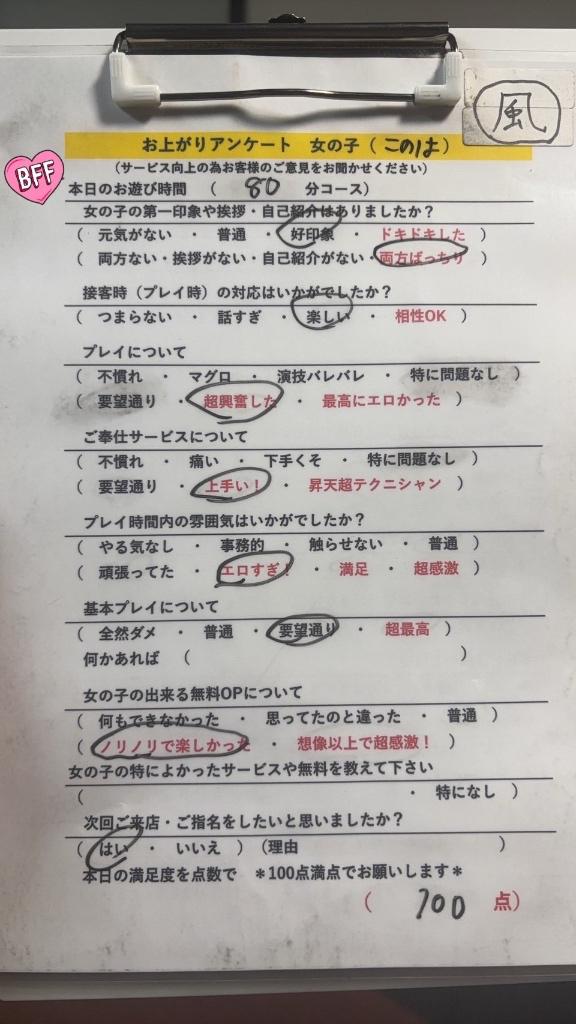 風
お上がりアンケート 女の子（このは）
BFF
（サービス向上の為お客様のご意見をお聞かせください）
本日のお遊び時間 （ 80 分コース）
女の子の第一印象や挨拶・自己紹介はありましたか？
（ 元気がない ・ 普通 ・ 好印象 ・ ドキドキした ）
（ 両方ない・挨拶がない・自己紹介がない・両方ばっちり ）
接客時（プレイ時）の対応はいかがでしたか？
（ つまらない ・ 話すぎ ・ 楽しい ・ 相性OK ）
プレイについて
（ 不慣れ ・ マグロ ・ 演技バレバレ ・ 特に問題なし ）
（ 要望通り ・ 超興奮した ・ 最高にエロかった ）
ご奉仕サービスについて
（ 不慣れ ・ 痛い ・ 下手くそ ・ 特に問題なし ）
（ 要望通り ・ 上手い！ ・ 昇天超テクニシャン ）
プレイ時間内の雰囲気はいかがでしたか？
（ やる気なし ・ 事務的 ・ 触らせない ・ 普通 ）
（ 頑張ってた ・ エロすぎ！ ・ 満足 ・ 超感激 ）
基本プレイについて
（ 全然ダメ ・ 普通 ・ 要望通り ・ 超最高 ）
何かあれば （ ）
女の子の出来る無料OPについて
（ 何もできなかった ・ 思ってたのと違った ・ 普通 ）
（ ノリノリで楽しかった ・ 想像以上で超感激！ ）
女の子の特によかったサービスや無料を教えて下さい
（ ・ 特になし ）
次回ご来店・ご指名をしたいと思いましたか？
（ はい ・ いいえ ）（理由 ）
本日の満足度を点数で ＊100点満点でお願いします＊
（ 100 点）